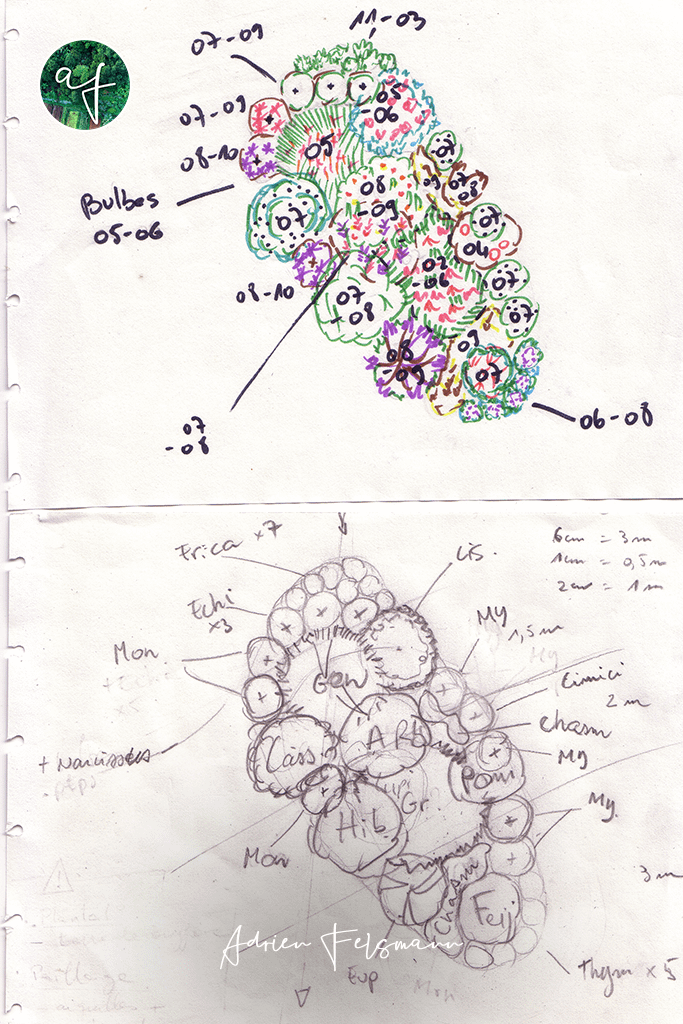 af
07-09
11-03
05
-06
07-09
05
07
08-10
08
-09
09
07
08
Bulbes
05-06
07
07
04
02
-06
07
08-10
07
+ 08
07
09
08
-09
07
07
-08
06-08
Erica x7
Cis.
6cm = 3m
1cm = 0,5m
2cm = 1m
Echi
x3
My
1,5m
Mon
Gaw
Cimici
2m
+ Echi
x5
Chasm
+ Narcisses
Cass
ARB
My
Pomi
Gr.
Hib
My.
Mon
3m
Chasm
Feij
Adrien Felsmann
Eup
Mon
Thym x 5
Paillage